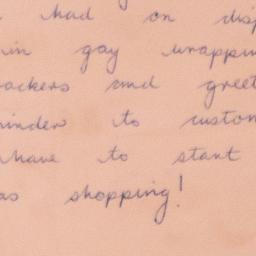 had on disp
in gay wrappin
ackers and greet
minder to custom
have to start
as shopping!